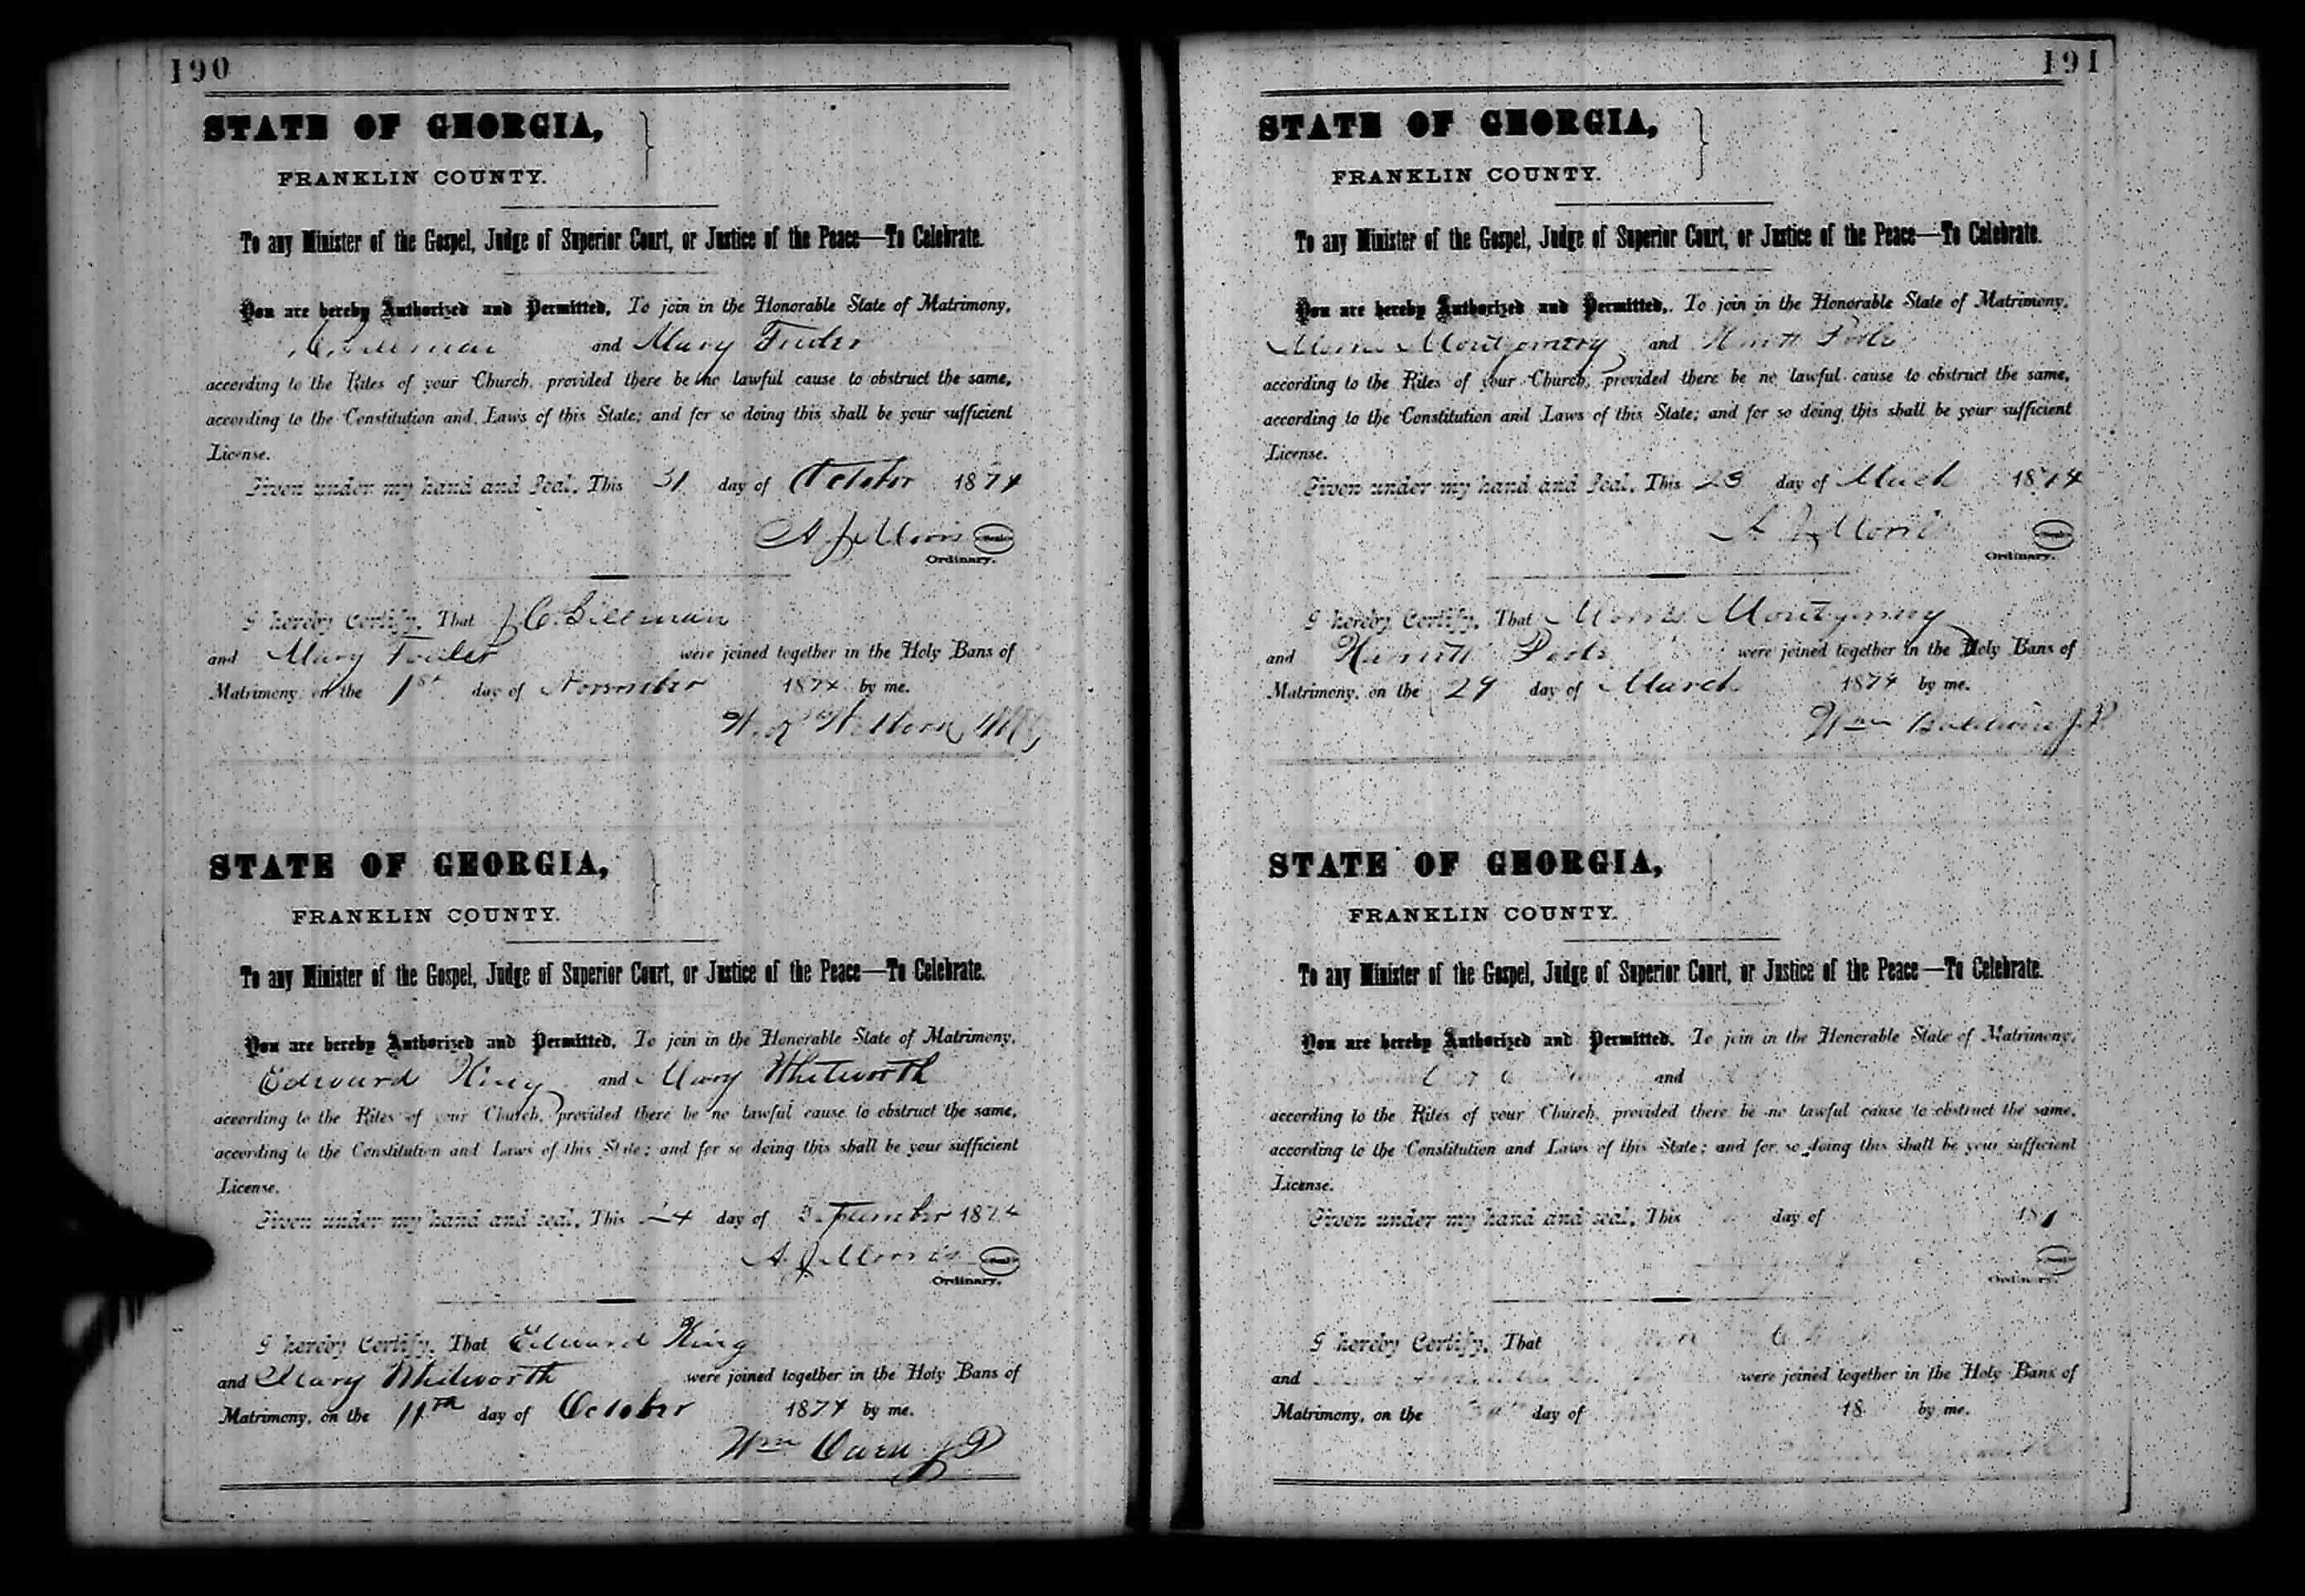 190
STATE OF GEORGIA,
FRANKLIN COUNTY.
To any Minister of the Gospel, Judge of Superior Court, or Justice of the Peace—To Celebrate.
You are hereby Authorized and Permitted, To join in the Honorable State of Matrimony,
and Mary
according to the Rites of your Church, provided there be no lawful cause to obstruct the same,
according to the Constitution and Laws of this State; and for so doing this shall be your sufficient
License.
Given under my hand and Seal, This 31 day of October 1874
A. J. Morris
Ordinary.
I hereby Certify, That J. C.
and Mary were joined together in the Holy Bans of
Matrimony, on the 1st day of November 1874 by me.
STATE OF GEORGIA,
FRANKLIN COUNTY.
To any Minister of the Gospel, Judge of Superior Court, or Justice of the Peace—To Celebrate.
You are hereby Authorized and Permitted, To join in the Honorable State of Matrimony,
Edward King and Mary Whitworth
according to the Rites of your Church, provided there be no lawful cause to obstruct the same,
according to the Constitution and Laws of this State; and for so doing this shall be your sufficient
License.
Given under my hand and seal, This 24 day of September 1874
A. J. Morris
Ordinary.
I hereby Certify, That Edward King
and Mary Whitworth were joined together in the Holy Bans of
Matrimony, on the 11th day of October 1874 by me.
Wm Owen J P
191
STATE OF GEORGIA,
FRANKLIN COUNTY.
To any Minister of the Gospel, Judge of Superior Court, or Justice of the Peace—To Celebrate.
You are hereby Authorized and Permitted, To join in the Honorable State of Matrimony,
Morris Montgomery and
according to the Rites of your Church, provided there be no lawful cause to obstruct the same,
according to the Constitution and Laws of this State; and for so doing this shall be your sufficient
License.
Given under my hand and Seal, This 23 day of March 1874
A J Morris
Ordinary.
I hereby Certify, That Morris Montgomery
and were joined together in the Holy Bans of
Matrimony, on the 29 day of March 1874 by me.
Wm Baldwin J. P.
STATE OF GEORGIA,
FRANKLIN COUNTY.
To any Minister of the Gospel, Judge of Superior Court, or Justice of the Peace—To Celebrate.
You are hereby Authorized and Permitted, To join in the Honorable State of Matrimony,
and
according to the Rites of your Church, provided there be no lawful cause to obstruct the same,
according to the Constitution and Laws of this State; and for so doing this shall be your sufficient
License.
Given under my hand and seal, This day of 187
Ordinary.
I hereby Certify, That
and were joined together in the Holy Bans of
Matrimony, on the day of 18 by me.